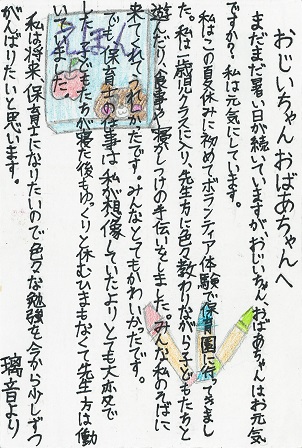 おじいちゃんおばあちゃんへ
まだまだ暑い日が続いていますが、おじいちゃん、おばあちゃんはお元気
ですか?私は元気にしています。
私はこの夏休みに初めてボランティア体験で保育園に行ってきまし
た。私は一歳児クラスに入り、先生方に色々教わりながら子どもたちと
遊んだり、食事や寝かしつけの手伝いをしました。みんな私のそばに
来てくれて、うれしかったです。みんなとてもかわいかったです。
でも、保育士の仕事は私が想像していたよりとても大変で
した。子どもたちが寝た後もゆっくりと休むひまもなくて先生方は働
いていました。
私は将来、保育士になりたいので色々な勉強を今から少しずつ
がんばりたいと思います。
璃音より
えほん